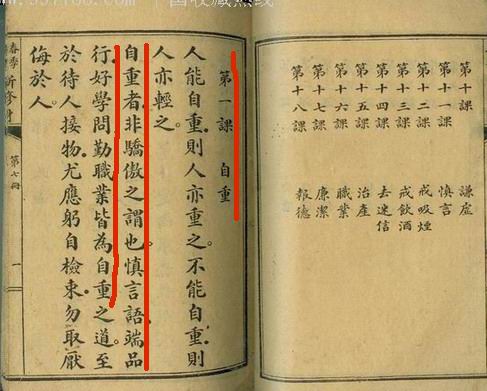 第十課 謙虛
第十一課 慎言
第十二課 戒吸煙
第十三課 戒飲酒
第十四課 去迷信
第十五課 治產
第十六課 職業
第十七課 廉潔
第十八課 報德
第一課 自重
人能自重。則人亦重之。不能自重。則
人亦輕之。
自重者。非驕傲之謂也。慎言語。端品
行。好學問。勤職業。皆為自重之道。至
於待人接物。尤應躬自檢束。勿取厭
侮於人。
春季 新修身 第七冊 一